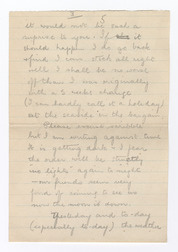 3 5
it would not be such a
surprise to you. If it
should happen I do go back
& find I am still all right
well I shall be no worse
off than I was originally
with a 3 weeks change
(I can hardly call it a holiday)
at the seaside in the bargain.
Please excuse scribble
but I am writing against time
It is getting dark & I fear
the order will be strictly
"no lights" again to-night
now friends seem very
fond of coming to see us
now the moon is down.
Yesterday and to-day
(especially to-day) the weather